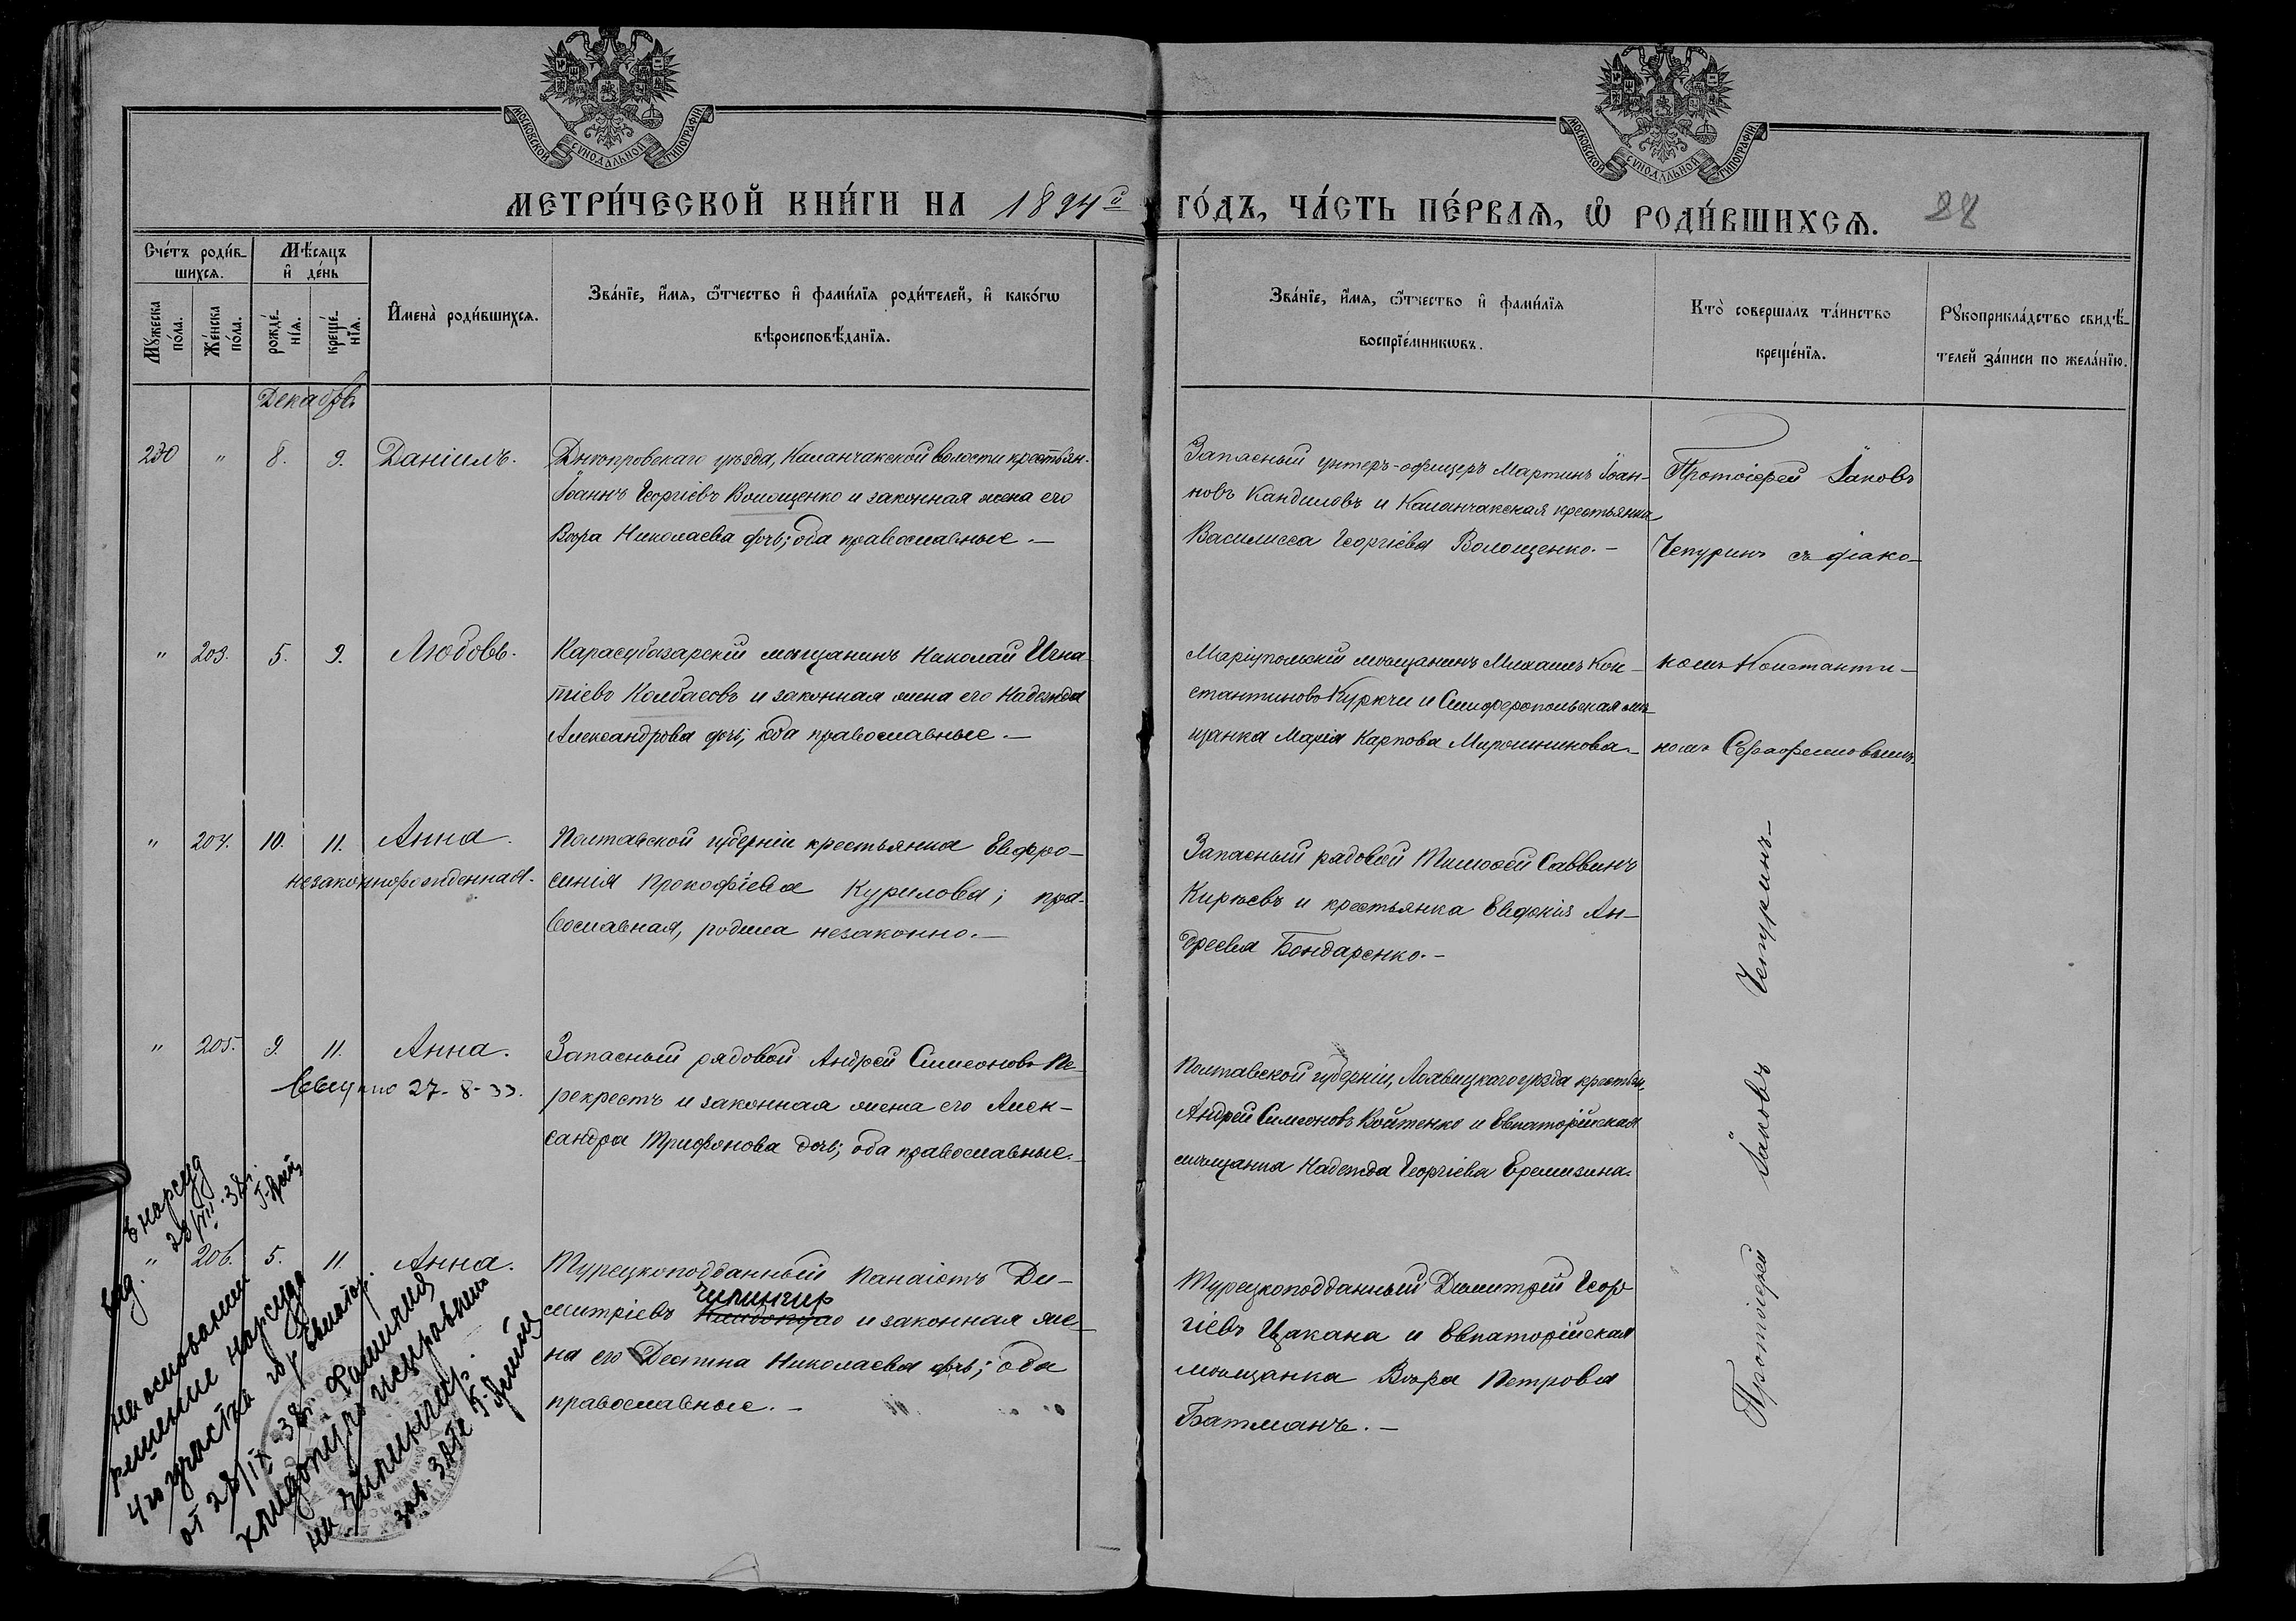 МОСКОВСКОЙ СѴНОДАЛЬНОЙ ТИПОГРАФІИ.
МОСКОВСКОЙ СѴНОДАЛЬНОЙ ТИПОГРАФІИ.
МЕТРИ́ЧЕСКОЙ КНИ́ГИ НА 1894й ГО́ДЪ, ЧА́СТЬ ПЕ́РВАѦ, Ѡ҆ РОДИ́ВШИХСѦ. 88
Сче́тъ роди́в-
шихсѧ.
Мꙋ́жеска по́ла.
Же́нска по́ла.
Мѣ́сѧцъ
и҆ де́нь
рожде́-
нїѧ.
креще́-
нїѧ.
И҆мена̀ роди́вшихсѧ.
Зва́нїе, и҆́мѧ, ѻ҆́тчество и҆ фами́лїѧ роди́телей, и҆ како́гѡ
вѣроисповѣ́данїѧ.
Зва́нїе, и҆́мѧ, ѻ҆́тчество и҆ фами́лїѧ
воспрїе́мникѡвъ.
Кто̀ совершалъ та́инство
креще́нїѧ.
Рꙋкоприкла́дство свидѣ́-
телей за́писи по жела́нїю.
Декабрь
230 " 8. 9. Даніилъ.
Днѣпровскаго уѣзда, Каланчакской волости крестьян.
Іоаннъ Георгіевъ Волощенко и законная жена его
Вѣра Николаева дочь; оба православные.—
Запасный унтеръ-офицеръ Мартинъ Іоан-
новъ Кандиловъ и Каланчакская крестьянка
Василисса Георгіева Волощенко.—
Протоіерей Іаковъ
Чепуринъ съ діако-
" 203. 5. 9. Любовь.
Карасубазарскій мѣщанинъ Николай Игна-
тіевъ Колбасовъ и законная жена его Надежда
Александрова дочь; оба православные.—
Маріупольскій мѣщанинъ Михаилъ Кон-
стантиновъ Куркчи и Симферопольская мѣ-
щанка Марія Карпова Мирошникова.—
номъ Константи-
номъ
" 204. 10. 11. Анна.
незаконнорожденная.
Полтавской губерніи крестьянка Евфро-
синія Прокофіева Курилова; пра-
вославная, родила незаконно.—
Запасный рядовой Тимофей Саввинъ
Киреевъ и крестьянка Евдокія Ан-
дреева Бондаренко.—
Протоіерей Іаковъ Чепуринъ—
" 205. 9. 11. Анна.
27-8-33.
Запасный рядовой Андрей Симеоновъ Пе-
рекрестъ и законная жена его Алек-
сандра Трифонова дочь; оба православные.—
Полтавской губерніи, Лохвицкаго уѣзда крестьян.
Андрей Симеоновъ Войтенко и Евпаторійская
мѣщанка Надежда Георгіева Еремизина.
" 206. 5. 11. Анна.
Турецкоподданный Панаіотъ Ди-
чилингир
митріевъ и законная же-
на его Деспина Николаева дочь; оба
православные.—
Турецкоподданный Димитрій Геор-
гіевъ Цакана и Евпаторійская
мѣщанка Вѣра Петрова
Батманъ.—
в нарсуд
на основании
решение нарсуда
4го участка гор Евпатор.
от 28/IX-38г. фамилия
исправлено
на чилингир.
зав. ЗАГС